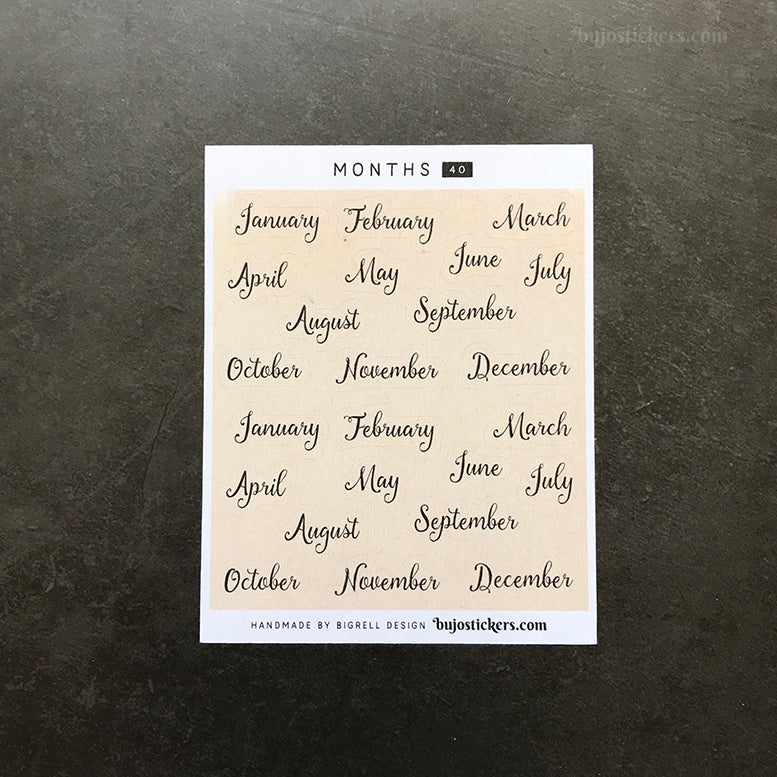 bujostickers.com
MONTHS 40
January February March
April May June July
August September
October November December
January February March
April May June July
August September
October November December
HANDMADE BY BIGRELL DESIGN bujostickers.com